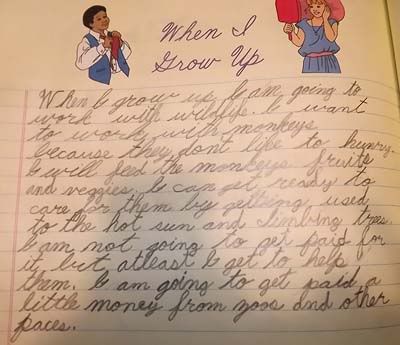 When I
Grow Up
When I grow up I am going to
work with wildlife. I want
to work with monkeys
because they dont like to hunry.
I will feed the monkeys fruits
and veggies. I can get ready to
care for them by getting used
to the hot sun and climbing trees.
I am not going to get paid for
it but atleast I get to help
them. I am going to get paid a
little money from zoos and other
paces.